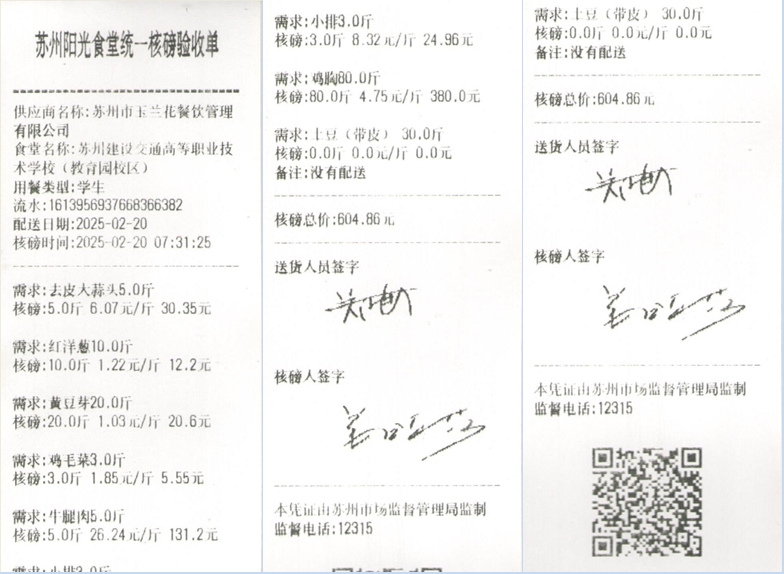 苏州阳光食堂统一核磅验收单
供应商名称:苏州市玉兰花餐饮管理
有限公司
食堂名称:苏州建设交通高等职业技
术学校（教育园校区）
用餐类型:学生
流水:1613956937668366382
配送日期:2025-02-20
核磅时间:2025-02-20 07:31:25
需求:去皮大蒜头5.0斤
核磅:5.0斤 6.07元/斤 30.35元
需求:红洋葱10.0斤
核磅:10.0斤 1.22元/斤 12.2元
需求:黄豆芽20.0斤
核磅:20.0斤 1.03元/斤 20.6元
需求:鸡毛菜3.0斤
核磅:3.0斤 1.85元/斤 5.55元
需求:牛腿肉5.0斤
核磅:5.0斤 26.24元/斤 131.2元
需求:小排3.0斤
需求:小排3.0斤
核磅:3.0斤 8.32元/斤 24.96元
需求:鸡胸80.0斤
核磅:80.0斤 4.75元/斤 380.0元
需求:土豆（带皮） 30.0斤
核磅:0.0斤 0.0元/斤 0.0元
备注:没有配送
核磅总价:604.86元
送货人员签字
核磅人签字
本凭证由苏州市场监督管理局监制
监督电话:12315
需求:土豆（带皮） 30.0斤
核磅:0.0斤 0.0元/斤 0.0元
备注:没有配送
核磅总价:604.86元
送货人员签字
核磅人签字
本凭证由苏州市场监督管理局监制
监督电话:12315